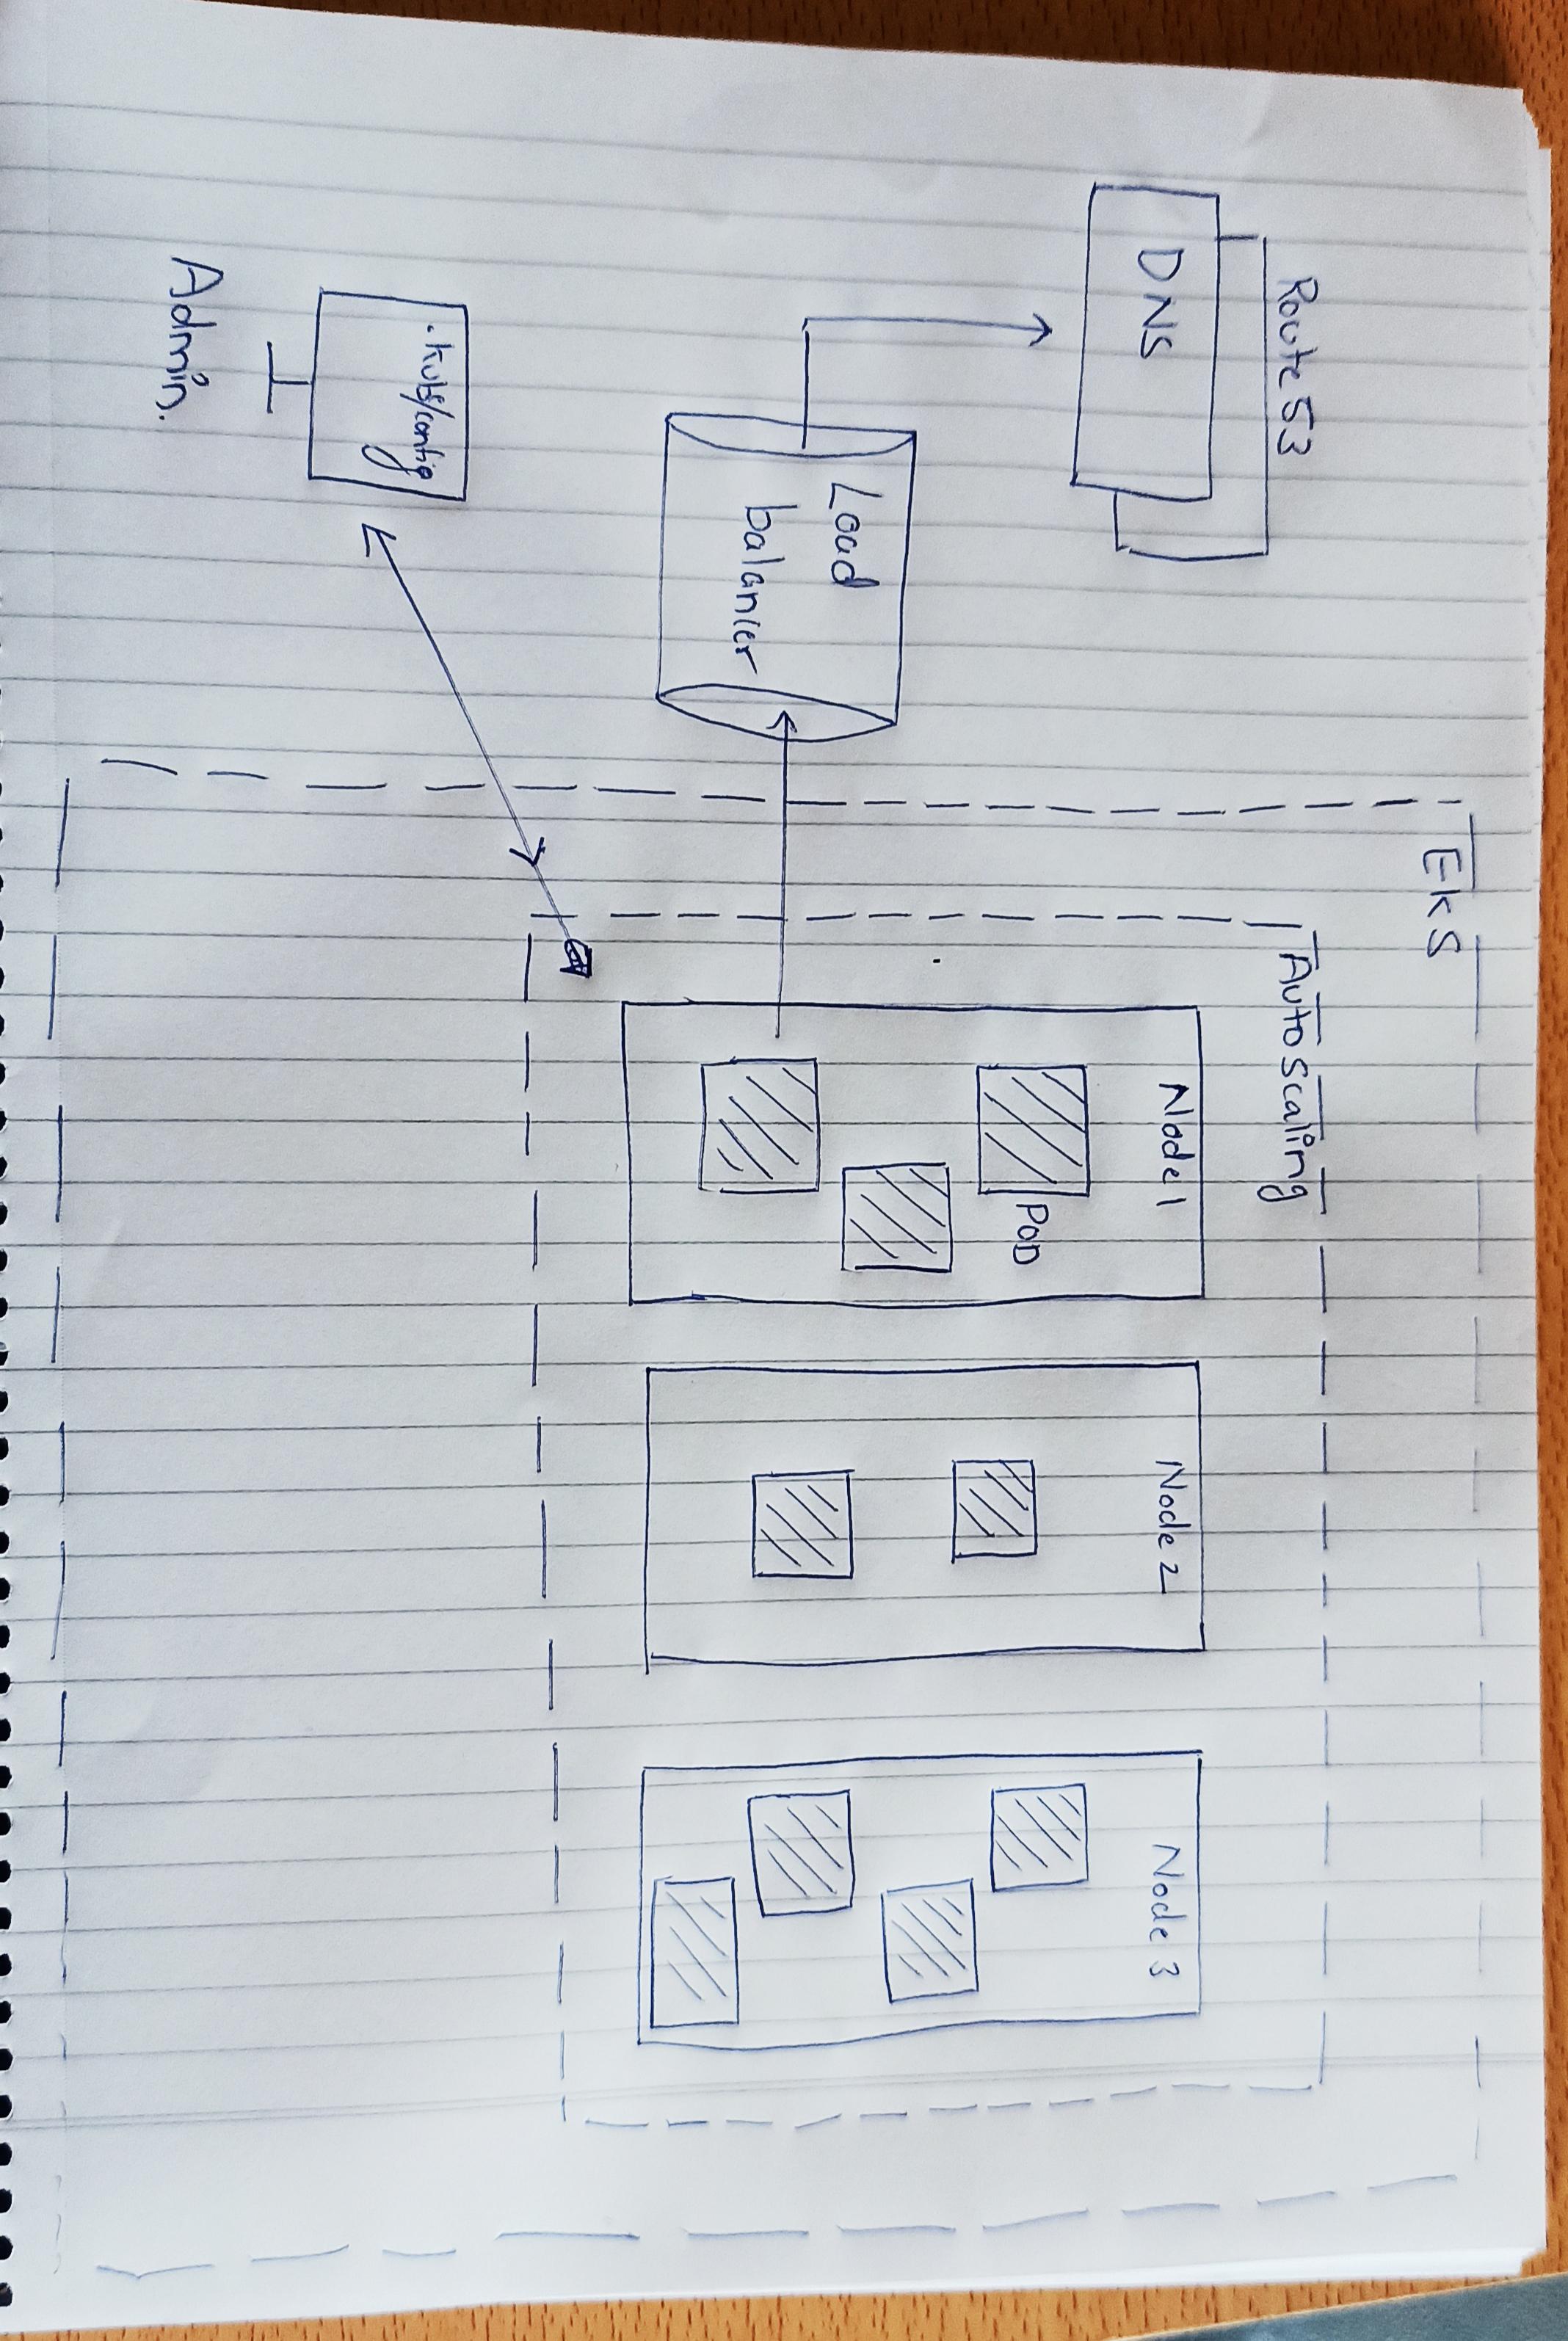 Route 53
DNS
Load
balancer
.kube/config
Admin.
EKS
Autoscaling
Node 1
POD
Node 2
Node 3